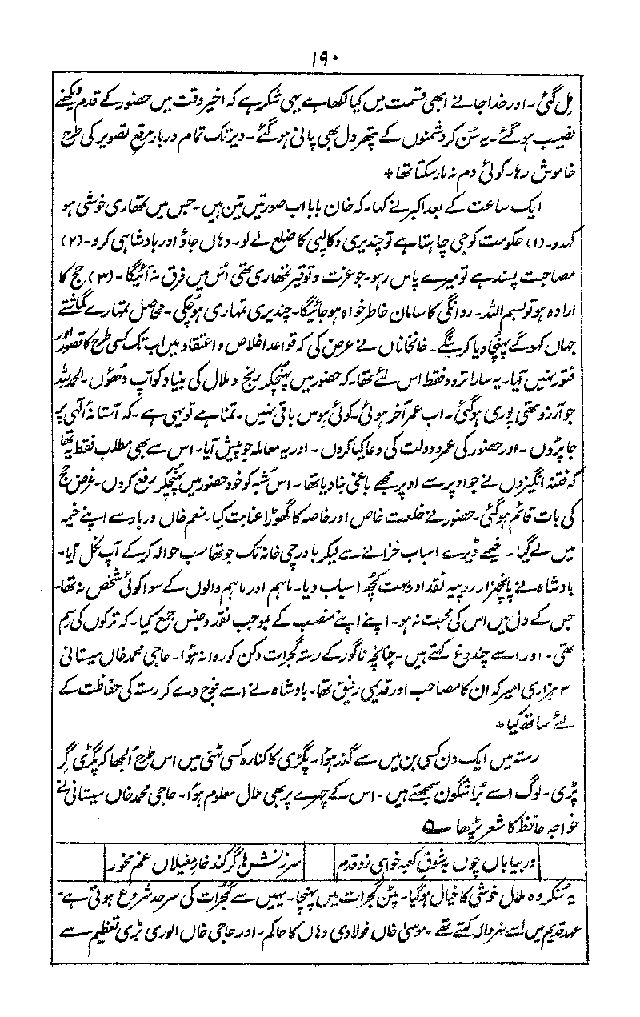 ۱۹۰
مل گئی۔ اور خدا جانے ابھی قسمت میں کیا لکھا ہے یہی شکر ہے کہ اخیر وقت میں حضور کے قدم دیکھنے
نصیب ہو گئے۔ یہ سن کر دشمنوں کے پتھر دل بھی پانی ہو گئے۔ دیر تک تمام دربار مرقع تصویر کی طرح
خاموش رہا۔ کوئی دم نہ مار سکتا تھا ٭
ایک ساعت کے بعد اکبر نے کہا۔ کہ خان بابا اب صورتیں تین ہیں۔ جس میں تمھاری خوشی ہو
کہدو۔ (۱) حکومت کو جی چاہتا ہے تو چندیری و کالپی کا ضلع لے لو۔ وہاں جاؤ اور بادشاہی کرو۔ (۲)
مصاحبت پسند ہے تو میرے پاس رہو۔ جو عزت و توقیر تمھاری تھی اُس میں فرق نہ آئیگا۔ (۳) حج کا
ارادہ ہو تو بسم اللہ۔ روانگی کا سامان خاطر خواہ ہو جائیگا۔ چندیری تمہاری ہو چکی۔ محاصل تمہارے گماشتے
جہاں کہو گے پہنچا دیا کرینگے۔ خانخاناں نے عرض کی کہ قواعد اخلاص و اعتقاد میں اب تک کسی طرح کا قصور
فتور نہیں آیا۔ یہ سارا تردد فقط اس لئے تھا۔ کہ حضور میں پہنچکر رنج و ملال کی بنیاد کو آپ دھوؤں۔ الحمد للہ
جو آرزو تھی پوری ہو گئی۔ اب عمر آخر ہوئی۔ کوئی ہوس باقی نہیں۔ تمنا ہے تو یہی ہے۔ کہ آستانہ الٰہی پر
جا پڑوں۔ اور حضور کی عمر و دولت کی دعا کیا کروں۔ اور یہ معاملہ جو پیش آیا۔ اس سے بھی مطلب فقط یہ تھا
کہ فتنہ انگیزوں نے جو اوپر سے اوپر مجھے باغی بنا دیا تھا۔ اس شبہ کو خود حضور میں پہنچکر رفع کروں۔ غرض حج
کی بات قائم ہو گئی۔ حضور نے خلعت خاص اور خاصہ کا گھوڑا عنایت کیا۔ منعم خاں دربار سے اپنے خیمہ
میں لے گیا۔ خیمے ڈیرے اسباب خزانے سے لیکر باورچی خانہ تک جو تھا سب حوالہ کر کے آپ نکل آیا۔
بادشاہ نے پانچہزار روپیہ نقد اور بہت کچھ اسباب دیا۔ ماہم اور ماہم والوں کے سوا کوئی شخص نہ تھا۔
جس کے دل میں اس کی محبت نہ ہو۔ اپنے اپنے منصب کے بموجب نقد و جنس جمع کیا۔ کہ ترکوں کی رسم
تھی۔ اور اسے چندوغ کہتے ہیں۔ چنانچہ ناگور کے رستہ گجرات دکن کو روانہ ہوا۔ حاجی محمد خاں سیستانی
۳ ہزاری امیر کہ ان کا مصاحب اور قدیمی رفیق تھا۔ بادشاہ نے اسے فوج دے کر رستہ کی حفاظت کے
لئے ساتھ کیا ٭
رستہ میں ایک دن کسی بن میں سے گذر ہوا۔ پگڑی کا کنارہ کسی ٹہنی میں اس طرح اُلجھا کہ پگڑی گر
پڑی۔ لوگ اسے بُرا شگون سمجھتے ہیں۔ اس کے چہرے پر بھی ملال معلوم ہوا۔ حاجی محمد خاں سیستانی نے
خواجہ حافظ کا شعر پڑھا ؎
در بیاباں چوں بشوق کعبہ خواہی زد قدم سرزنشہا گر کند خار مغیلاں غم مخور
یہ سنکر وہ ملال خوشی کا خیال ہو گیا۔ پٹن گجرات میں پہنچا۔ یہیں سے گجرات کی سرحد شروع ہوتی ہے۔
عہد قدیم میں اسے نہروالہ کہتے تھے۔ موسیٰ خاں فولادی وہاں کا حاکم۔ اور حاجی خاں الوری بڑی تعظیم سے